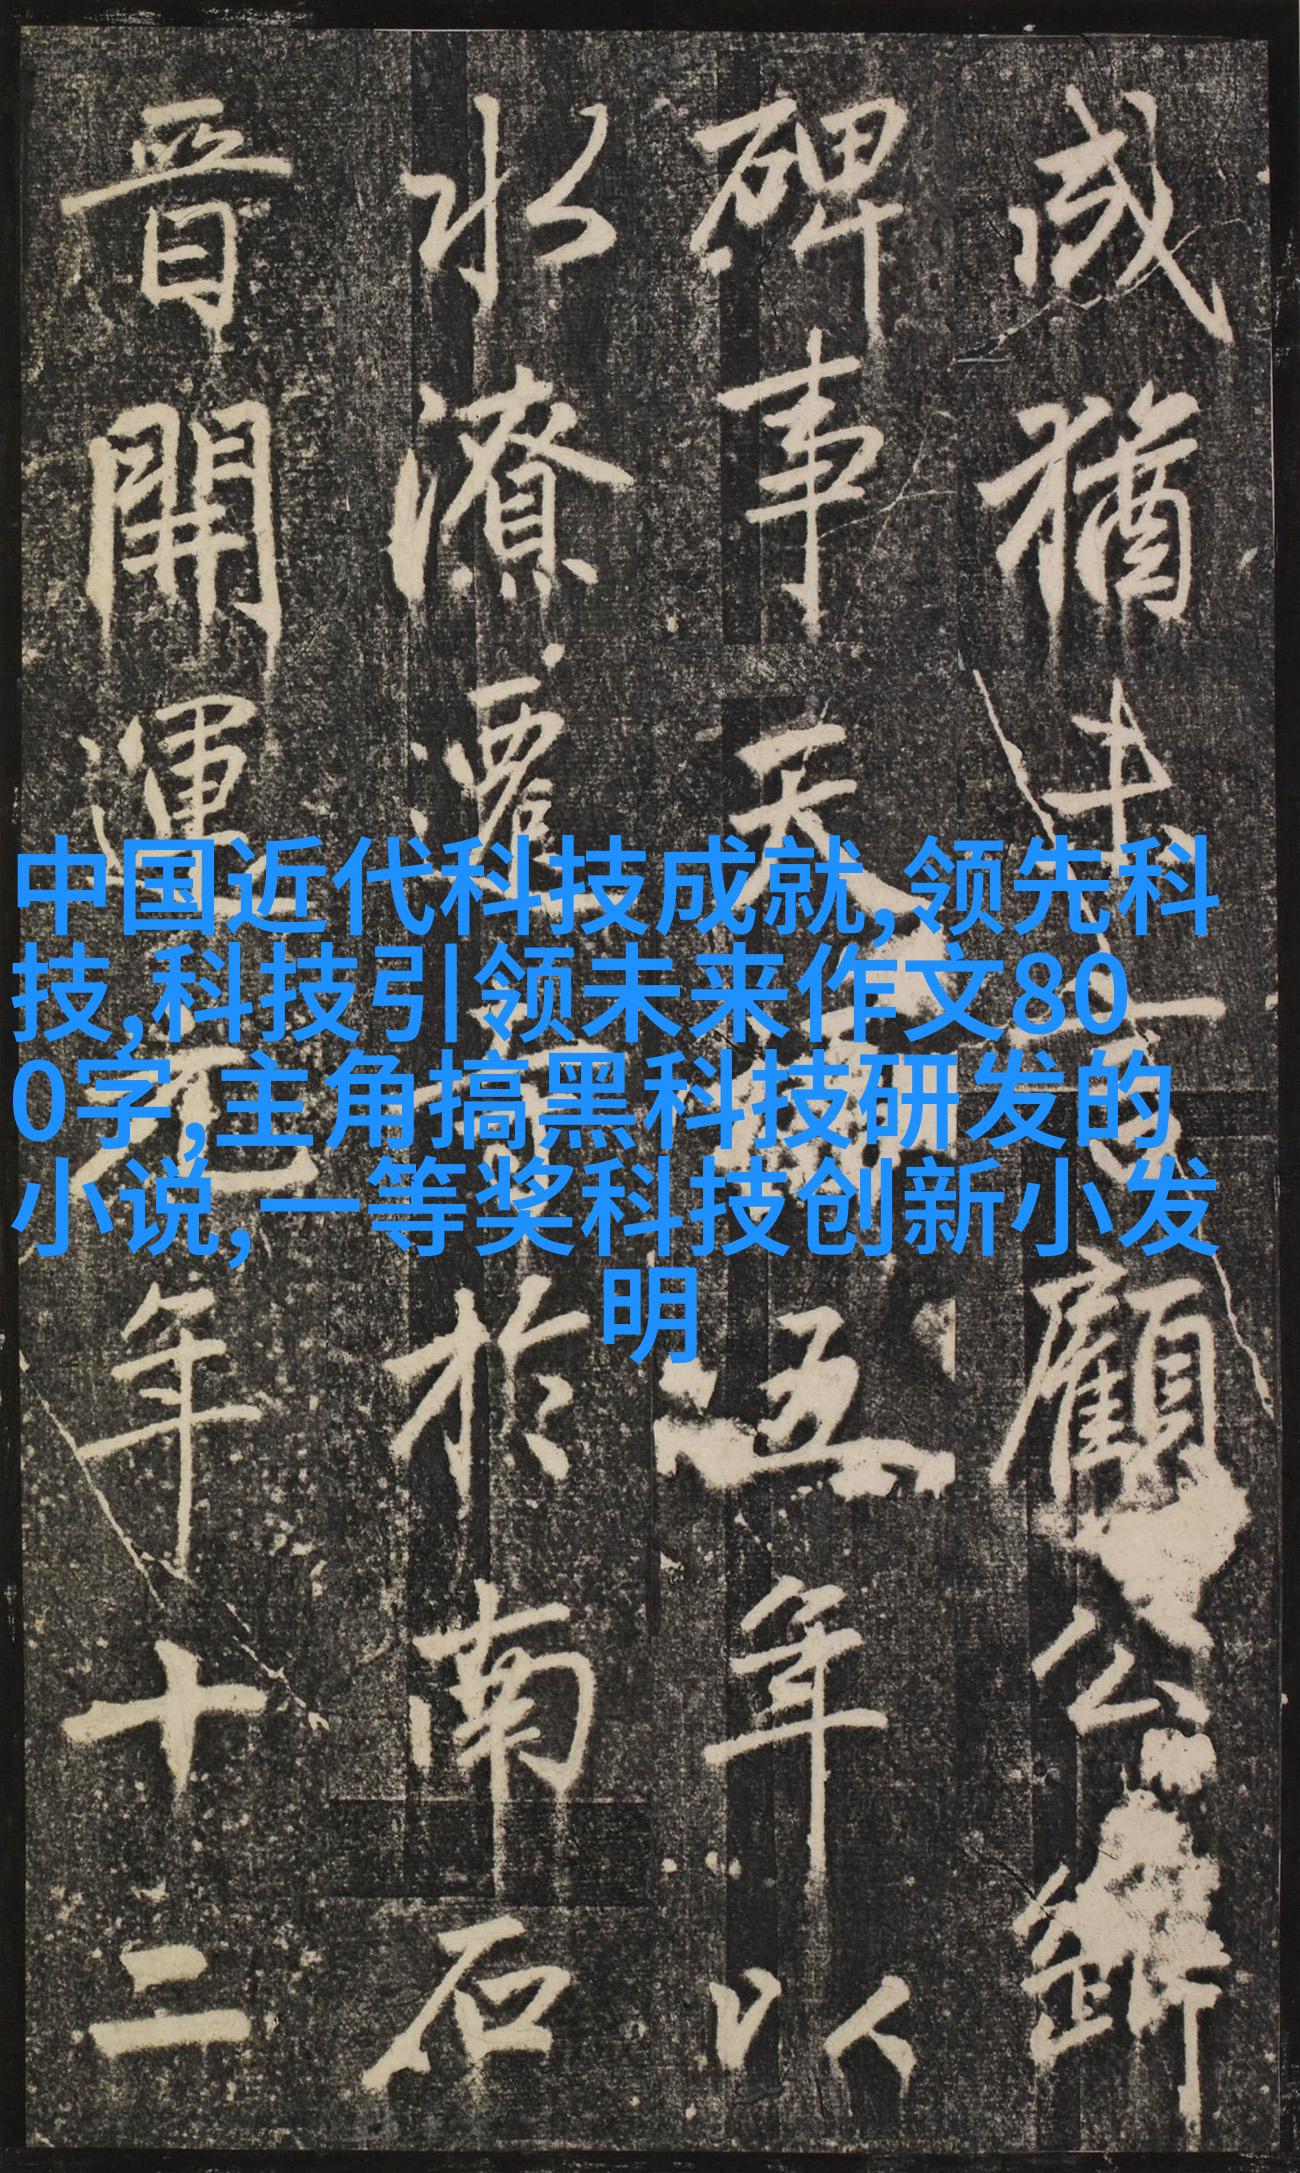 中国近代科技成就,领先科
技,科技引领未来作文80
0字,主角搞黑科技研发的
小说,一等奖科技创新小发
明
猶 顧公
碑事天 五年以
水潦遷 於南石
晉開運元年十二